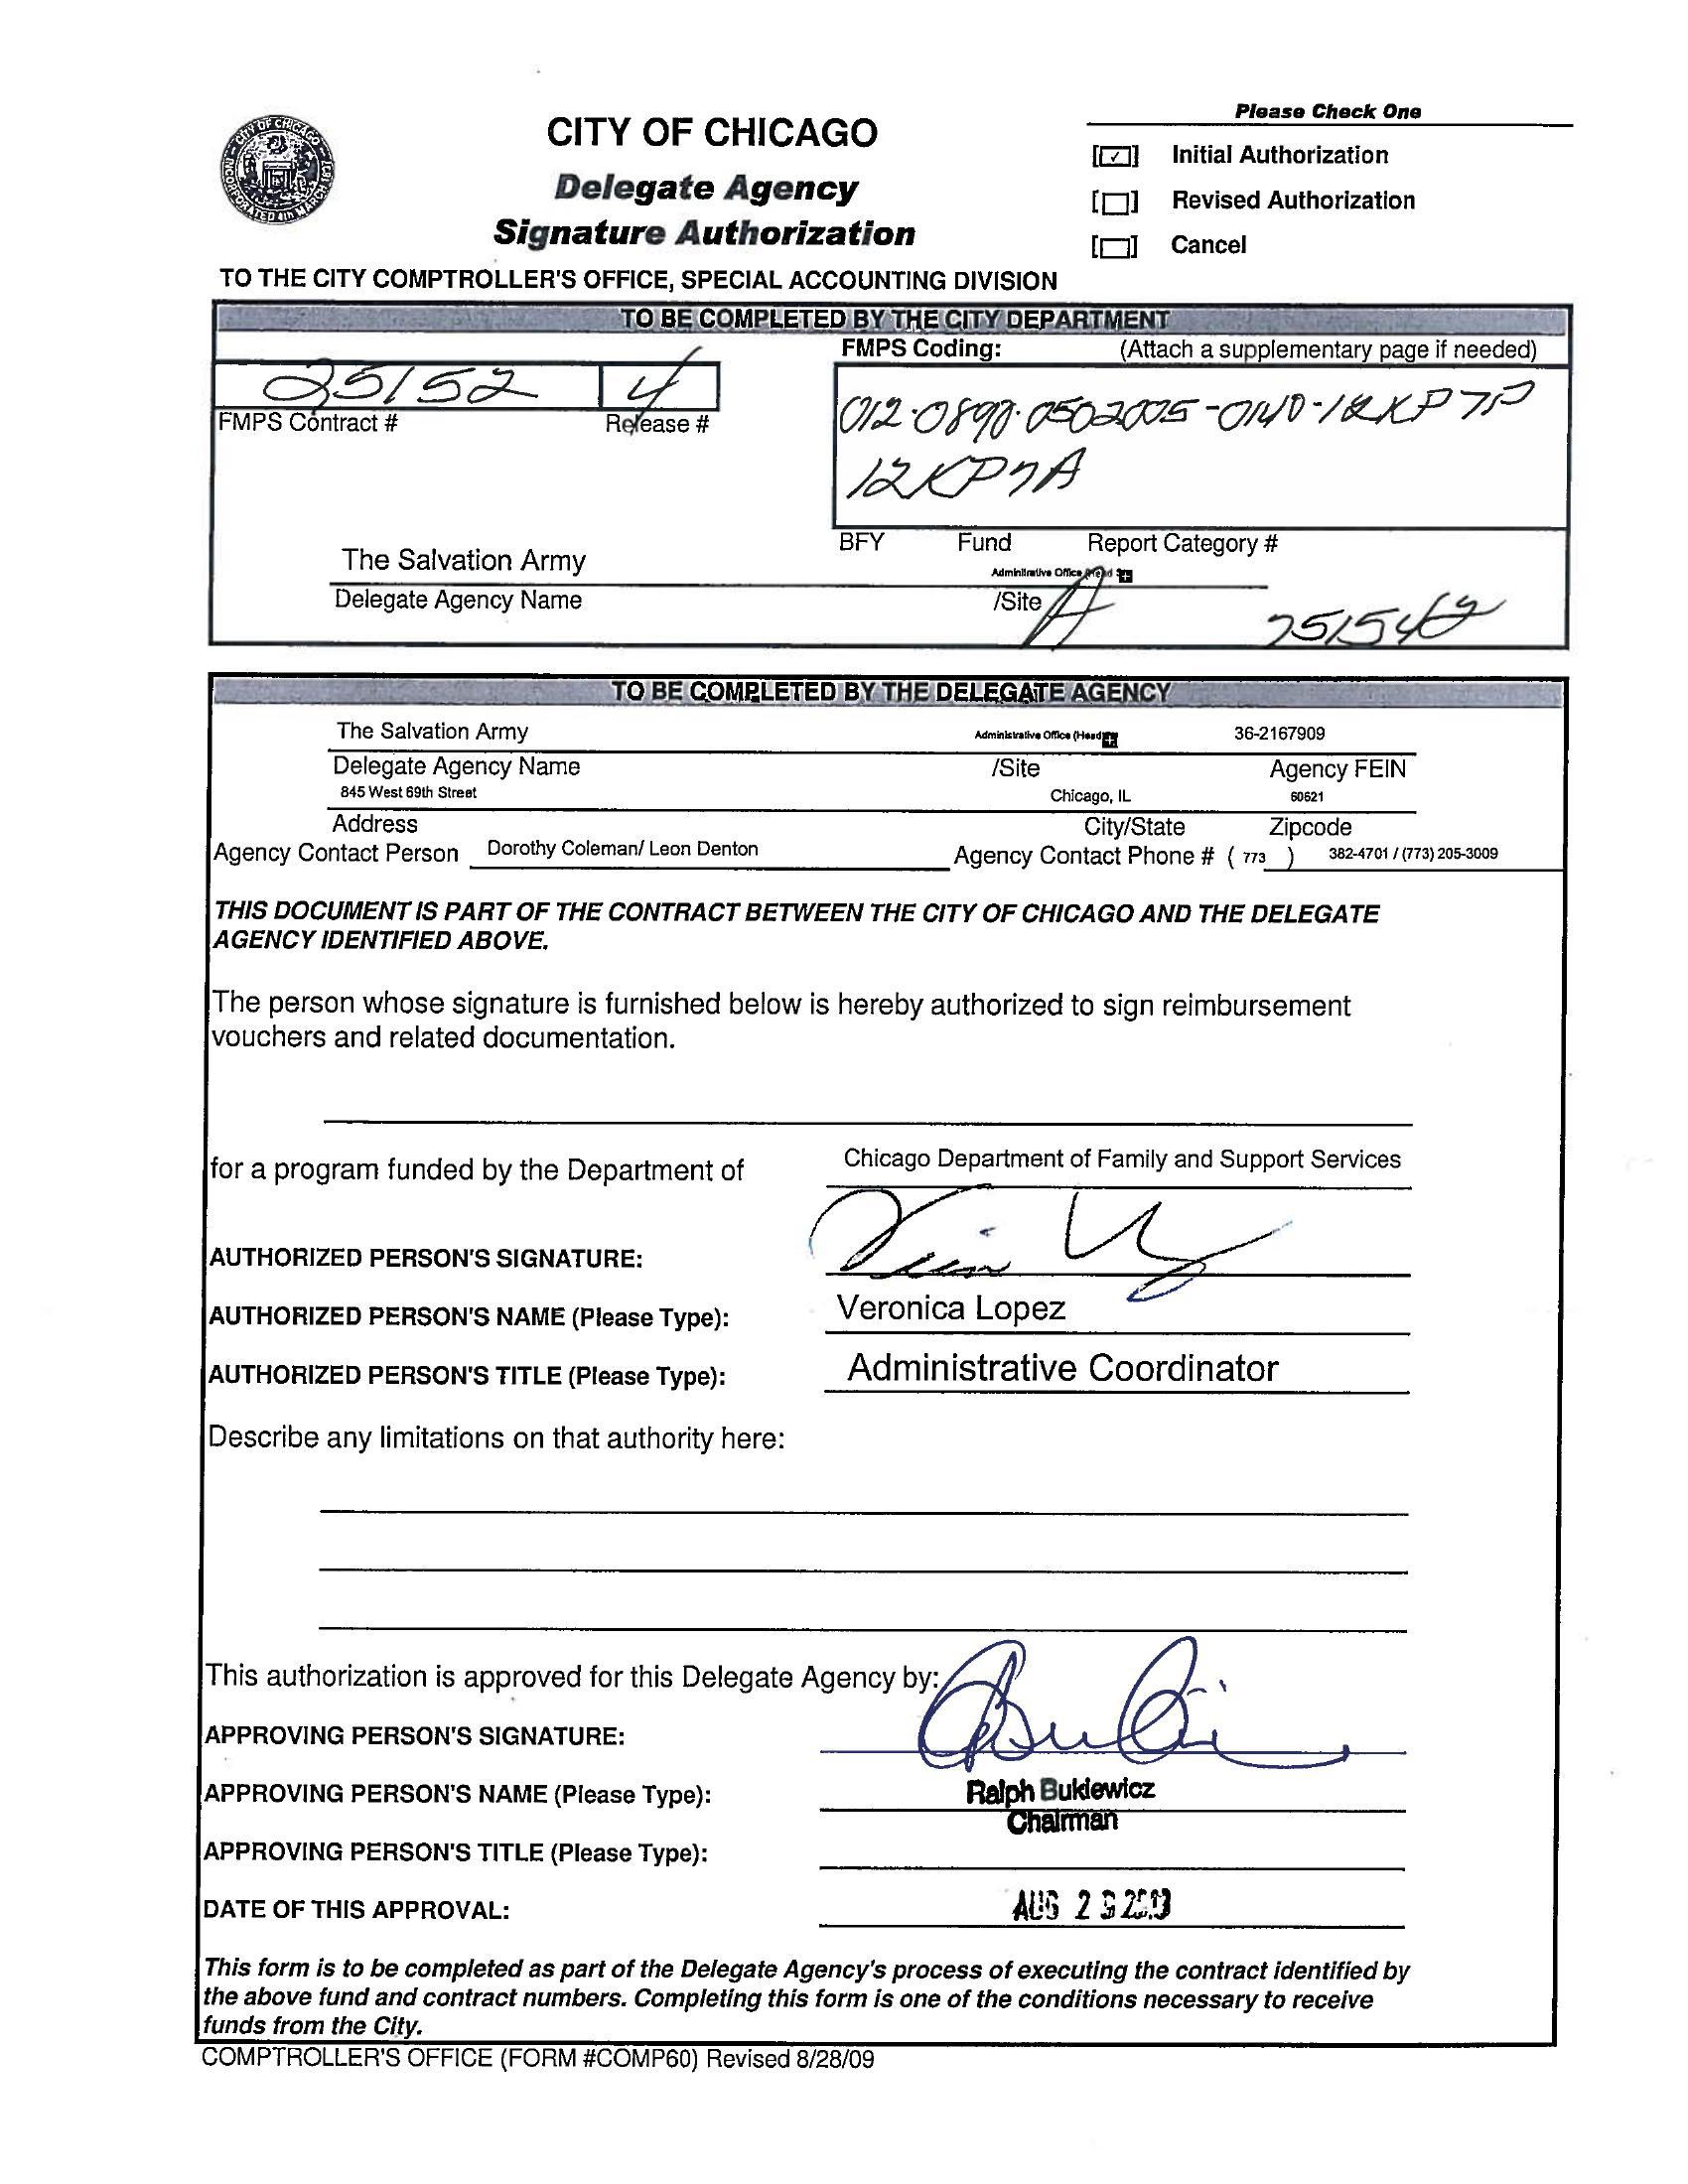 Please Check One
CITY OF CHICAGO
Delegate Agency
Signature Authorization
[✓] Initial Authorization
[ ] Revised Authorization
[ ] Cancel
TO THE CITY COMPTROLLER'S OFFICE, SPECIAL ACCOUNTING DIVISION
TO BE COMPLETED BY THE CITY DEPARTMENT
FMPS Coding: (Attach a supplementary page if needed)
25152 4
FMPS Contract # Release #
12KP7A
BFY Fund Report Category #
The Salvation Army Administrative Office
Delegate Agency Name /Site
TO BE COMPLETED BY THE DELEGATE AGENCY
The Salvation Army Administrative Office (Head 36-2167909
Delegate Agency Name /Site Agency FEIN
845 West 69th Street Chicago, IL 60621
Address City/State Zipcode
Agency Contact Person Dorothy Coleman/ Leon Denton Agency Contact Phone # ( 773 ) 382-4701 / (773) 205-3009
THIS DOCUMENT IS PART OF THE CONTRACT BETWEEN THE CITY OF CHICAGO AND THE DELEGATE
AGENCY IDENTIFIED ABOVE.
The person whose signature is furnished below is hereby authorized to sign reimbursement
vouchers and related documentation.
for a program funded by the Department of Chicago Department of Family and Support Services
AUTHORIZED PERSON'S SIGNATURE:
AUTHORIZED PERSON'S NAME (Please Type): Veronica Lopez
AUTHORIZED PERSON'S TITLE (Please Type): Administrative Coordinator
Describe any limitations on that authority here:
This authorization is approved for this Delegate Agency by:
APPROVING PERSON'S SIGNATURE:
APPROVING PERSON'S NAME (Please Type): Ralph Bukiewicz
Chairman
APPROVING PERSON'S TITLE (Please Type):
DATE OF THIS APPROVAL: AUG
This form is to be completed as part of the Delegate Agency's process of executing the contract identified by
the above fund and contract numbers. Completing this form is one of the conditions necessary to receive
funds from the City.
COMPTROLLER'S OFFICE (FORM #COMP60) Revised 8/28/09